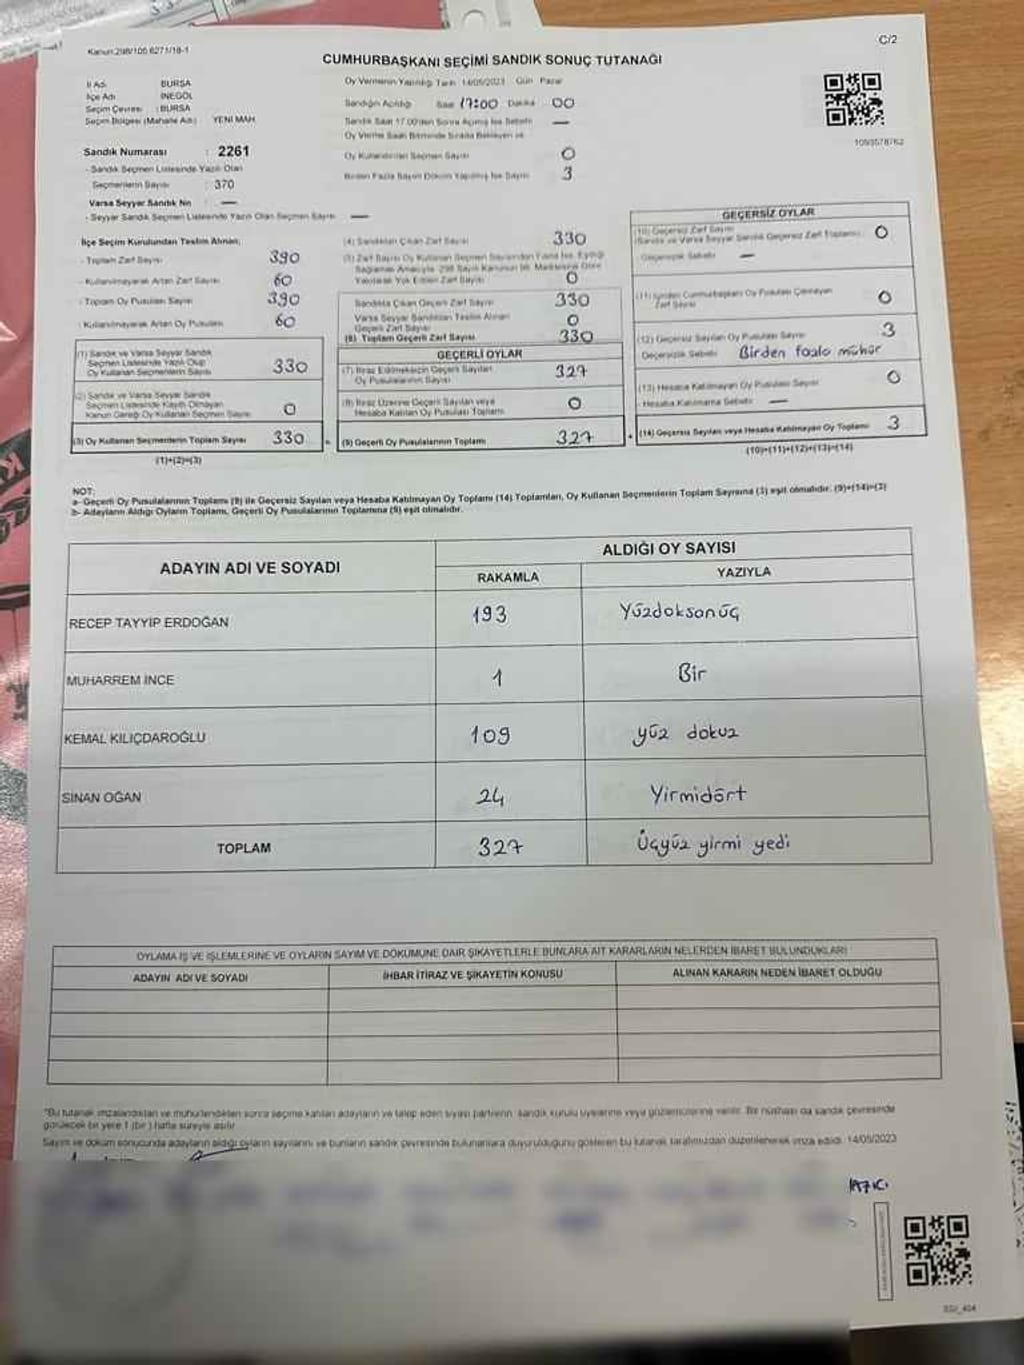 Kanun:298/105 6271/18-1
C/2
CUMHURBAŞKANI SEÇİMİ SANDIK SONUÇ TUTANAĞI
İl Adı BURSA
İlçe Adı İNEGÖL
Seçim Çevresi : BURSA
Seçim Bölgesi (Mahalle Adı) YENİ MAH
Sandık Numarası : 2261
- Sandık Seçmen Listesinde Yazılı Olan
Seçmenlerin Sayısı : 370
Varsa Seyyar Sandık No : —
- Seyyar Sandık Seçmen Listesinde Yazılı Olan Seçmen Sayısı —
Oy Vermenin Yapıldığı Tarih 14/05/2023 Gün Pazar
Sandığın Açıldığı Saat 17:00 Dakika 00
Sandık Saat 17.00'den Sonra Açılmış İse Sebebi —
Oy Verme Saati Bitiminde Sırada Bekleyen ve
Oy Kullandırılan Seçmen Sayısı 0
Birden Fazla Sayım Döküm Yapılmış İse Sayısı 3
1093578762
İlçe Seçim Kurulundan Teslim Alınan;
- Toplam Zarf Sayısı 390
- Kullanılmayarak Artan Zarf Sayısı 60
- Toplam Oy Pusulası Sayısı 390
- Kullanılmayarak Artan Oy Pusulası 60
(1) Sandık ve Varsa Seyyar Sandık
Seçmen Listesinde Yazılı Olup
Oy Kullanan Seçmenlerin Sayısı 330
(2) Sandık ve Varsa Seyyar Sandık
Seçmen Listesinde Kayıtlı Olmayan
Kanun Gereği Oy Kullanan Seçmen Sayısı 0
(3) Oy Kullanan Seçmenlerin Toplam Sayısı 330
(1)+(2)=(3)
(4) Sandıktan Çıkan Zarf Sayısı 330
(5) Zarf Sayısı Oy Kullanan Seçmen Sayısından Fazla İse, Eşitliği
Sağlamak Amacıyla 298 Sayılı Kanunun 98. Maddesine Göre
Yakılarak Yok Edilen Zarf Sayısı 0
Sandıkta Çıkan Geçerli Zarf Sayısı 330
Varsa Seyyar Sandıktan Teslim Alınan
Geçerli Zarf Sayısı 0
(6) Toplam Geçerli Zarf Sayısı 330
GEÇERLİ OYLAR
(7) İtiraz Edilmeksizin Geçerli Sayılan
Oy Pusulalarının Sayısı 327
(8) İtiraz Üzerine Geçerli Sayılan veya
Hesaba Katılan Oy Pusulası Toplamı 0
(9) Geçerli Oy Pusulalarının Toplamı 327
GEÇERSİZ OYLAR
(10) Geçersiz Zarf Sayısı
(Sandık ve Varsa Seyyar Sandık Geçersiz Zarf Toplamı) 0
Geçersizlik Sebebi —
(11) İçinden Cumhurbaşkanı Oy Pusulası Çıkmayan
Zarf Sayısı 0
(12) Geçersiz Sayılan Oy Pusulası Sayısı 3
Geçersizlik Sebebi Birden fazla mühür
(13) Hesaba Katılmayan Oy Pusulası Sayısı 0
- Hesaba Katılmama Sebebi —
(14) Geçersiz Sayılan veya Hesaba Katılmayan Oy Toplamı 3
(10)+(11)+(12)+(13)=(14)
NOT:
a- Geçerli Oy Pusulalarının Toplamı (9) ile Geçersiz Sayılan veya Hesaba Katılmayan Oy Toplamı (14) Toplamları, Oy Kullanan Seçmenlerin Toplam Sayısına (3) eşit olmalıdır. (9)+(14)=(3)
b- Adayların Aldığı Oyların Toplamı, Geçerli Oy Pusulalarının Toplamına (9) eşit olmalıdır.
ADAYIN ADI VE SOYADI
ALDIĞI OY SAYISI
RAKAMLA YAZIYLA
RECEP TAYYİP ERDOĞAN 193 Yüzdoksanüç
MUHARREM İNCE 1 Bir
KEMAL KILIÇDAROĞLU 109 yüz dokuz
SİNAN OĞAN 24 Yirmidört
TOPLAM 327 Üçyüz yirmi yedi
OYLAMA İŞ VE İŞLEMLERİNE VE OYLARIN SAYIM VE DÖKÜMÜNE DAİR ŞİKAYETLERLE BUNLARA AİT KARARLARIN NELERDEN İBARET BULUNDUKLARI
ADAYIN ADI VE SOYADI İHBAR İTİRAZ VE ŞİKAYETİN KONUSU ALINAN KARARIN NEDEN İBARET OLDUĞU
*Bu tutanak imzalandıktan ve mühürlendikten sonra seçime katılan adayların ve talep eden siyasi partilerin sandık kurulu üyelerine veya gözlemcilerine verilir. Bir nüshası da sandık çevresinde
görülecek bir yere 1 (bir) hafta süreyle asılır.
Sayım ve döküm sonucunda adayların aldığı oyların sayılarını ve bunların sandık çevresinde bulunanlara duyurulduğunu gösteren bu tutanak tarafımızdan düzenlenerek imza edildi. 14/05/2023